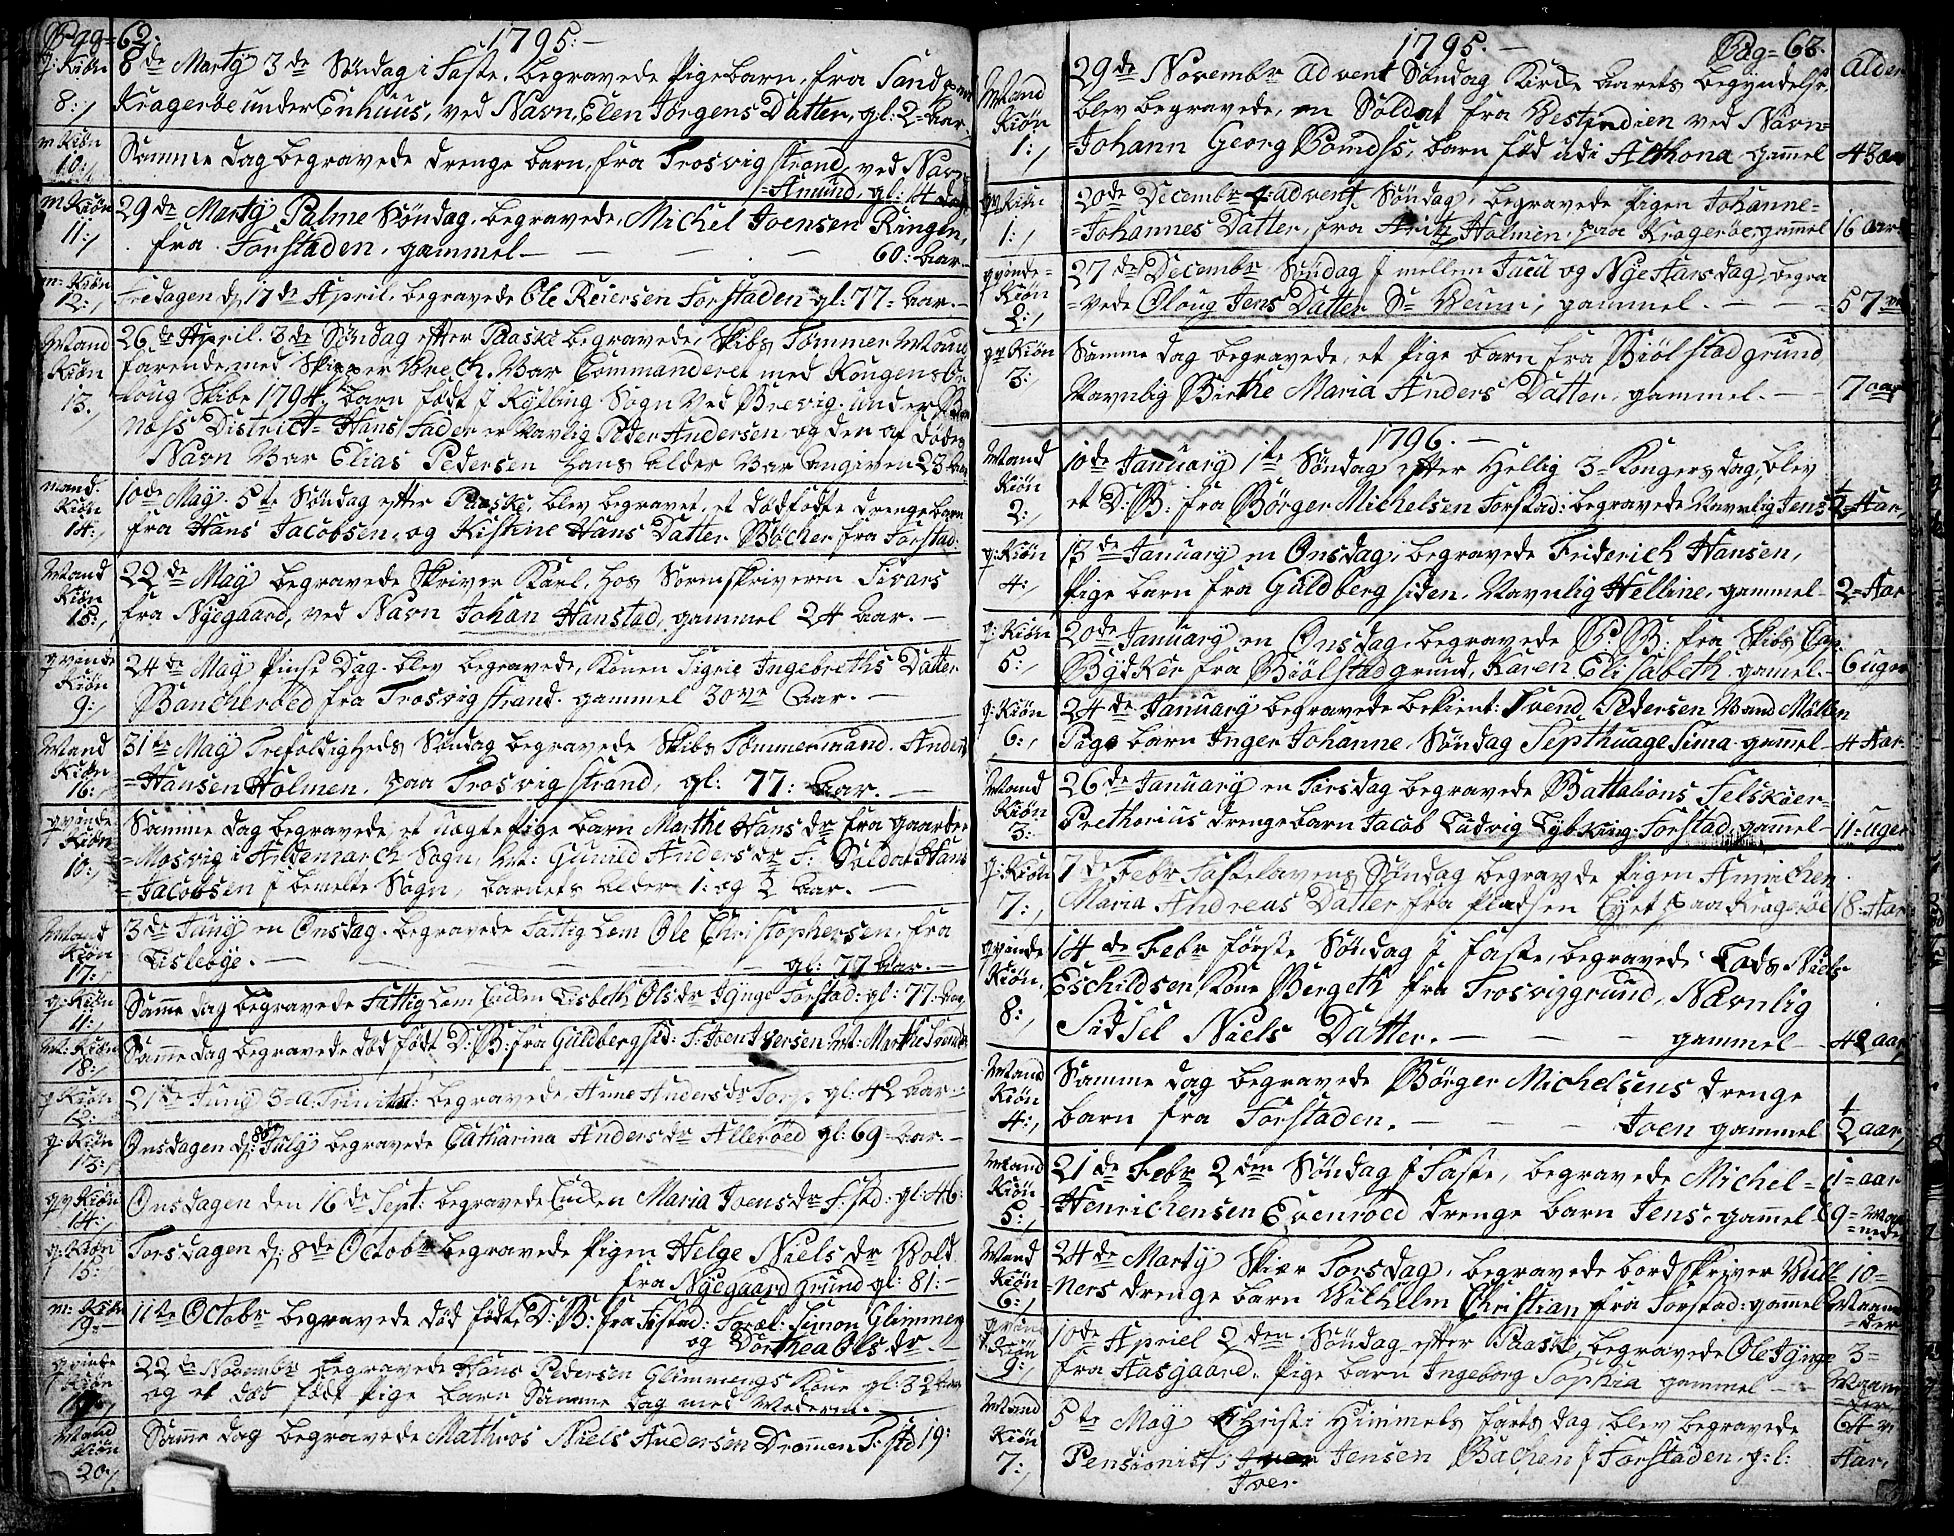 Pag=62:
1795:-
q: Kiøn
8:/
8de Martÿ 3de Søndag i Faste, begravede Pigebarn, fra Sand
Kragerøe under Enhuus, ved Navn, Elen Jørgens Datter, gl: 2= Aar
m Kiøn
10:/
Samme dag begravede drenge barn, fra Trosvig strand, ved Navn
=Amund, gl: 14 dage
m Kiøn
11:/
29de Martÿ Palme Søndag, begravede, Michel Joensen Ringen,
fra Forstaden, gammel - - - 60: Aar-
m: Kiøn
12:/
Fredagen d: 17de April begravede Ole Reiersen Forstaden gl: 77= Aar.-
Mand
Kiøn
13:/
26de April. 3de Søndag efter Paaske begravede, Skibs Tømmer Mand
farende med Skipper Brech. Var Commanderet med Kongens
Skibe 1794, barn født i Kÿlling Sogn ved Brevig. under
Næss District= Hans Fader er Navnlig Peder Andersen og den af Dødes
Navn Var Elias Pedersen hans Alder Var angiven 23 Aar
mand-
Kiøn
14:/
10de Maÿ. 5te Søndag efter Paaske, blev begravet, et dødfødte drengebarn
fra Hans Jacobsen, og Kistine Hans Datter Bøcher fra Forstad:
Mand
Kiøn
15:/
22de Maÿ begravede Skriver Karl. hos Sorenskriveren Sivars
fra Nÿegaard, ved Navn Johan Hanstad, gammel 24 Aar. -
qvinde
Kiøn
9:/
24de Maÿ Pinse Dag. blev begravede, Konen Sigrie Ingebreths Datter
Bancherøed fra Trosvig strand. gammel 30ve Aar. -
Mand
Kiøn
16:/
31te Maÿ Trefoldigheds Søndag begravede Skibs Tømmermand. Anders
=Hansen Holmen, paa Trosvig strand, gl: 77: Aar. -
qvinde
Kiøn
10:/
Samme dag begravede, et uægte Pige barn Marthe Hans dr fra gaarden
=Mosvig i Aidemarch Sogn, M: Gunild Anders dr F: Soldat Hans
=Jacobsen i bemelte Sogn, barnets Alder 1: og ½ Aar. -
Mand
Kiøn
17:/
3de Junÿ en Onsdag. begravede Fattig Lem Ole Christophersen, fra
Lisleøÿe. - - - gl: 77 Aar. -
q: Kiøn
11:/
Samme dag begravede Fattig Lem Enken Lisbeth Ols dr Iÿnge Forstad: gl: 77: Aar
M: Kiøn
18:/
Samme dag begravede død født D: B: fra Guldbergsid: F: Joen Iversen: M: Marthe
q: Kiøn
12:/
21de Junÿ 3= a. Trinitat: begravede, Anne Anders dr Torp, gl: 42 Aar -
q: Kiøn
13:/
Onsdagen d: 8de Julÿ begravede Catharina Anders dr Allerøed gl: 69 Aar. -
qv Kiøn
14:/
Onsdagen den 16de Sept: begravede Enken Maria Joens dr F: stad: gl: 46:
q: Kiøn
15:
Torsdagen d: 8de Octobr begravede Pigen Helge Niels dr Wold
fra Nÿegaard grund gl: 81: -
m: Kiøn
19=
11te Octobr begravede død født, D: B: fra F:stad: Foræl: Simon Glimmen
og Dorthea Ols dr. -
qvinde
Kiøn
22de Novembr begravede Hans Pedersen Glimmengs Kone gl: 32 Aar
og et død født Pige barn Samme dag med Moderen. -
Mand
Kiøn
20:/
Samme dag begravede Mathios Niels Andersen Drammen F: std 19:
1795. -
Pag= 63.
Alder
Mand
Kiøn
1:/
29de Novembr Advent Søndag Kirke Aarets begÿndelse
blev begravede, en Soldat fra Vestindien ved Navn=
=Johann Georg, barn fød udi Althona gammel 43 Aar
qv Kiøn
1:/
20de Decembr 4: advent, Søndag, begravede Pigen Johanne=
=Johannes Datter, fra Holmen, paa Kragerøe gammel 16 Aar
qvinde=
Kiøn
2:/
27de Decembr Søndag i mellem Juul og Nÿe Aars dag, begra
=vede Oloug Jens Datter Sr Veum; gammel. - - 57ve
qv Kiøn
3:
Samme dag begravede, et Pige barn fra Biølstad grund,
Navnlig Birthe Maria Anders Datter, gammel. - - 7 aar
1796. -
Mand
Kiøn
2:/
10de Januarÿ 1te Søndag efter Hellig 3= Kongers dag, blev
et D: B: fra Børger Michelsen Forstad: begravede Navnlig Jens ½= Aar,
q: Kiøn
4:/
13de Januarÿ en Onsdag, begravede Friderich Hansen,
Pige barn fra Guldberg siden. Navnlig Helline, gammel- 2= Aar
q: Kiøn
5:/
20de Januarÿ en Onsdag, begravede P: B: fra Skibs Cap:
Bÿdker fra Biølstad grund, Karen Elisabeth gamel. 6 uger
q: Kiøn
6:/
24de Januarÿ begravede bekient: Svend Pedersen Vand Møllen
Pige barn Inger Johanne. Søndag Septhuage Sima gammel- 4 Aar
Mand
Kiøn
3:
26de Januarÿ en Torsdag begravede Battalions Felskiær=
Prethorius drengebarn Jacob Ludvig Forstad, gammel- 11= Uger
q: Kiøn
7:/
7de Febr Fastelavens Søndag begravde Pigen Annichen
Maria Andreas Datter fra Pladsen Eÿet paa Kragerøe 18= Aar
qvinde
Kiøn.
8:/
14de Febr første Søndag i faste, begravede Lods Niels
Eschildsen Kone Bergeth fra Trosviggrund, Nævnlig
Sidsel Niels Datter. - - - gammel 42 aar
Mand
Kiøn
4:/
Samme dag begravede Børger Michelsens drenge
barn fra Forstaden. - - - Joen gammel ½ aar
Mand
Kiøn
5:/
21de Febr 2den Søndag i Faste, begravede Michel= 1= aar
Henrichensen Evenrøed drenge barn Jens, gammel 9= Maa
=neder
Mand
Kiøn
6:/
24de Martÿ Skier Torsdag, begravede bordskriver Vull 10=
ners drenge barn Wilhelm Christian fra Forstad: gammel Maane
=der
qvind
Kiøn
9:/
10de Apriel 2den Søndag efter Paaske, begravede Ole Iÿnge 3=
fra Aasgaard. Pige barn Ingeborg Sophia gammel - - Maane
der
Mand
Kiøn
7:/
5te Maÿ Christi Himmels farts dag, blev begravede 64 v
Pensionist Jensen Bachen i Forstaden, g: l: Aar,
Iver